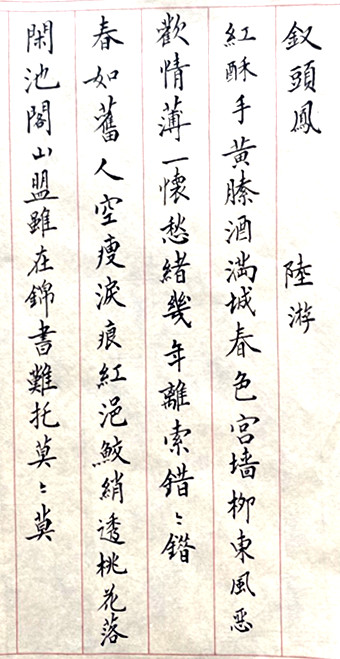 釵頭鳳 陸游
紅酥手黃縢酒滿城春色宮墻柳東風恶
歡情薄一懷愁緒幾年離索錯〻錯
春如舊人空瘦淚痕紅浥鮫綃透桃花落
閑池閣山盟雖在錦書難托莫〻莫